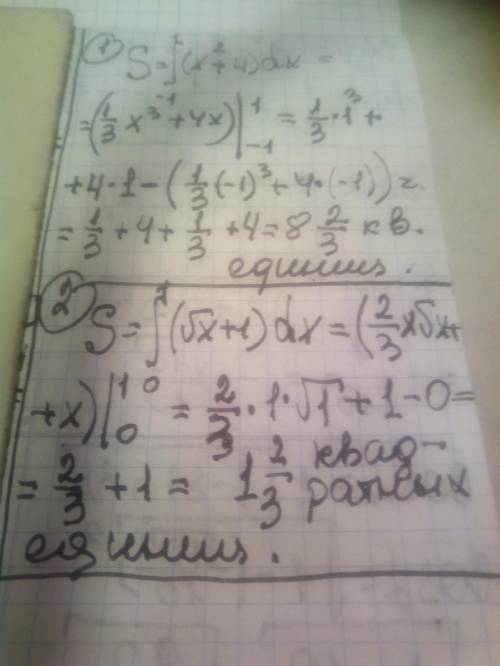 ① S=∫₋₁¹(x²+4)dx=
=(1/3 x³+4x)|₋₁¹=1/3·1³+
+4·1-(1/3(-1)³+4·(-1))=
=1/3+4+1/3+4=8 2/3 кв.
единиц.
② S=∫₀¹(√x+1)dx=(2/3x√x+
+x)|₀¹=2/3·1·√1+1-0=
=2/3+1=1 2/3 квад-
ратных
единиц.